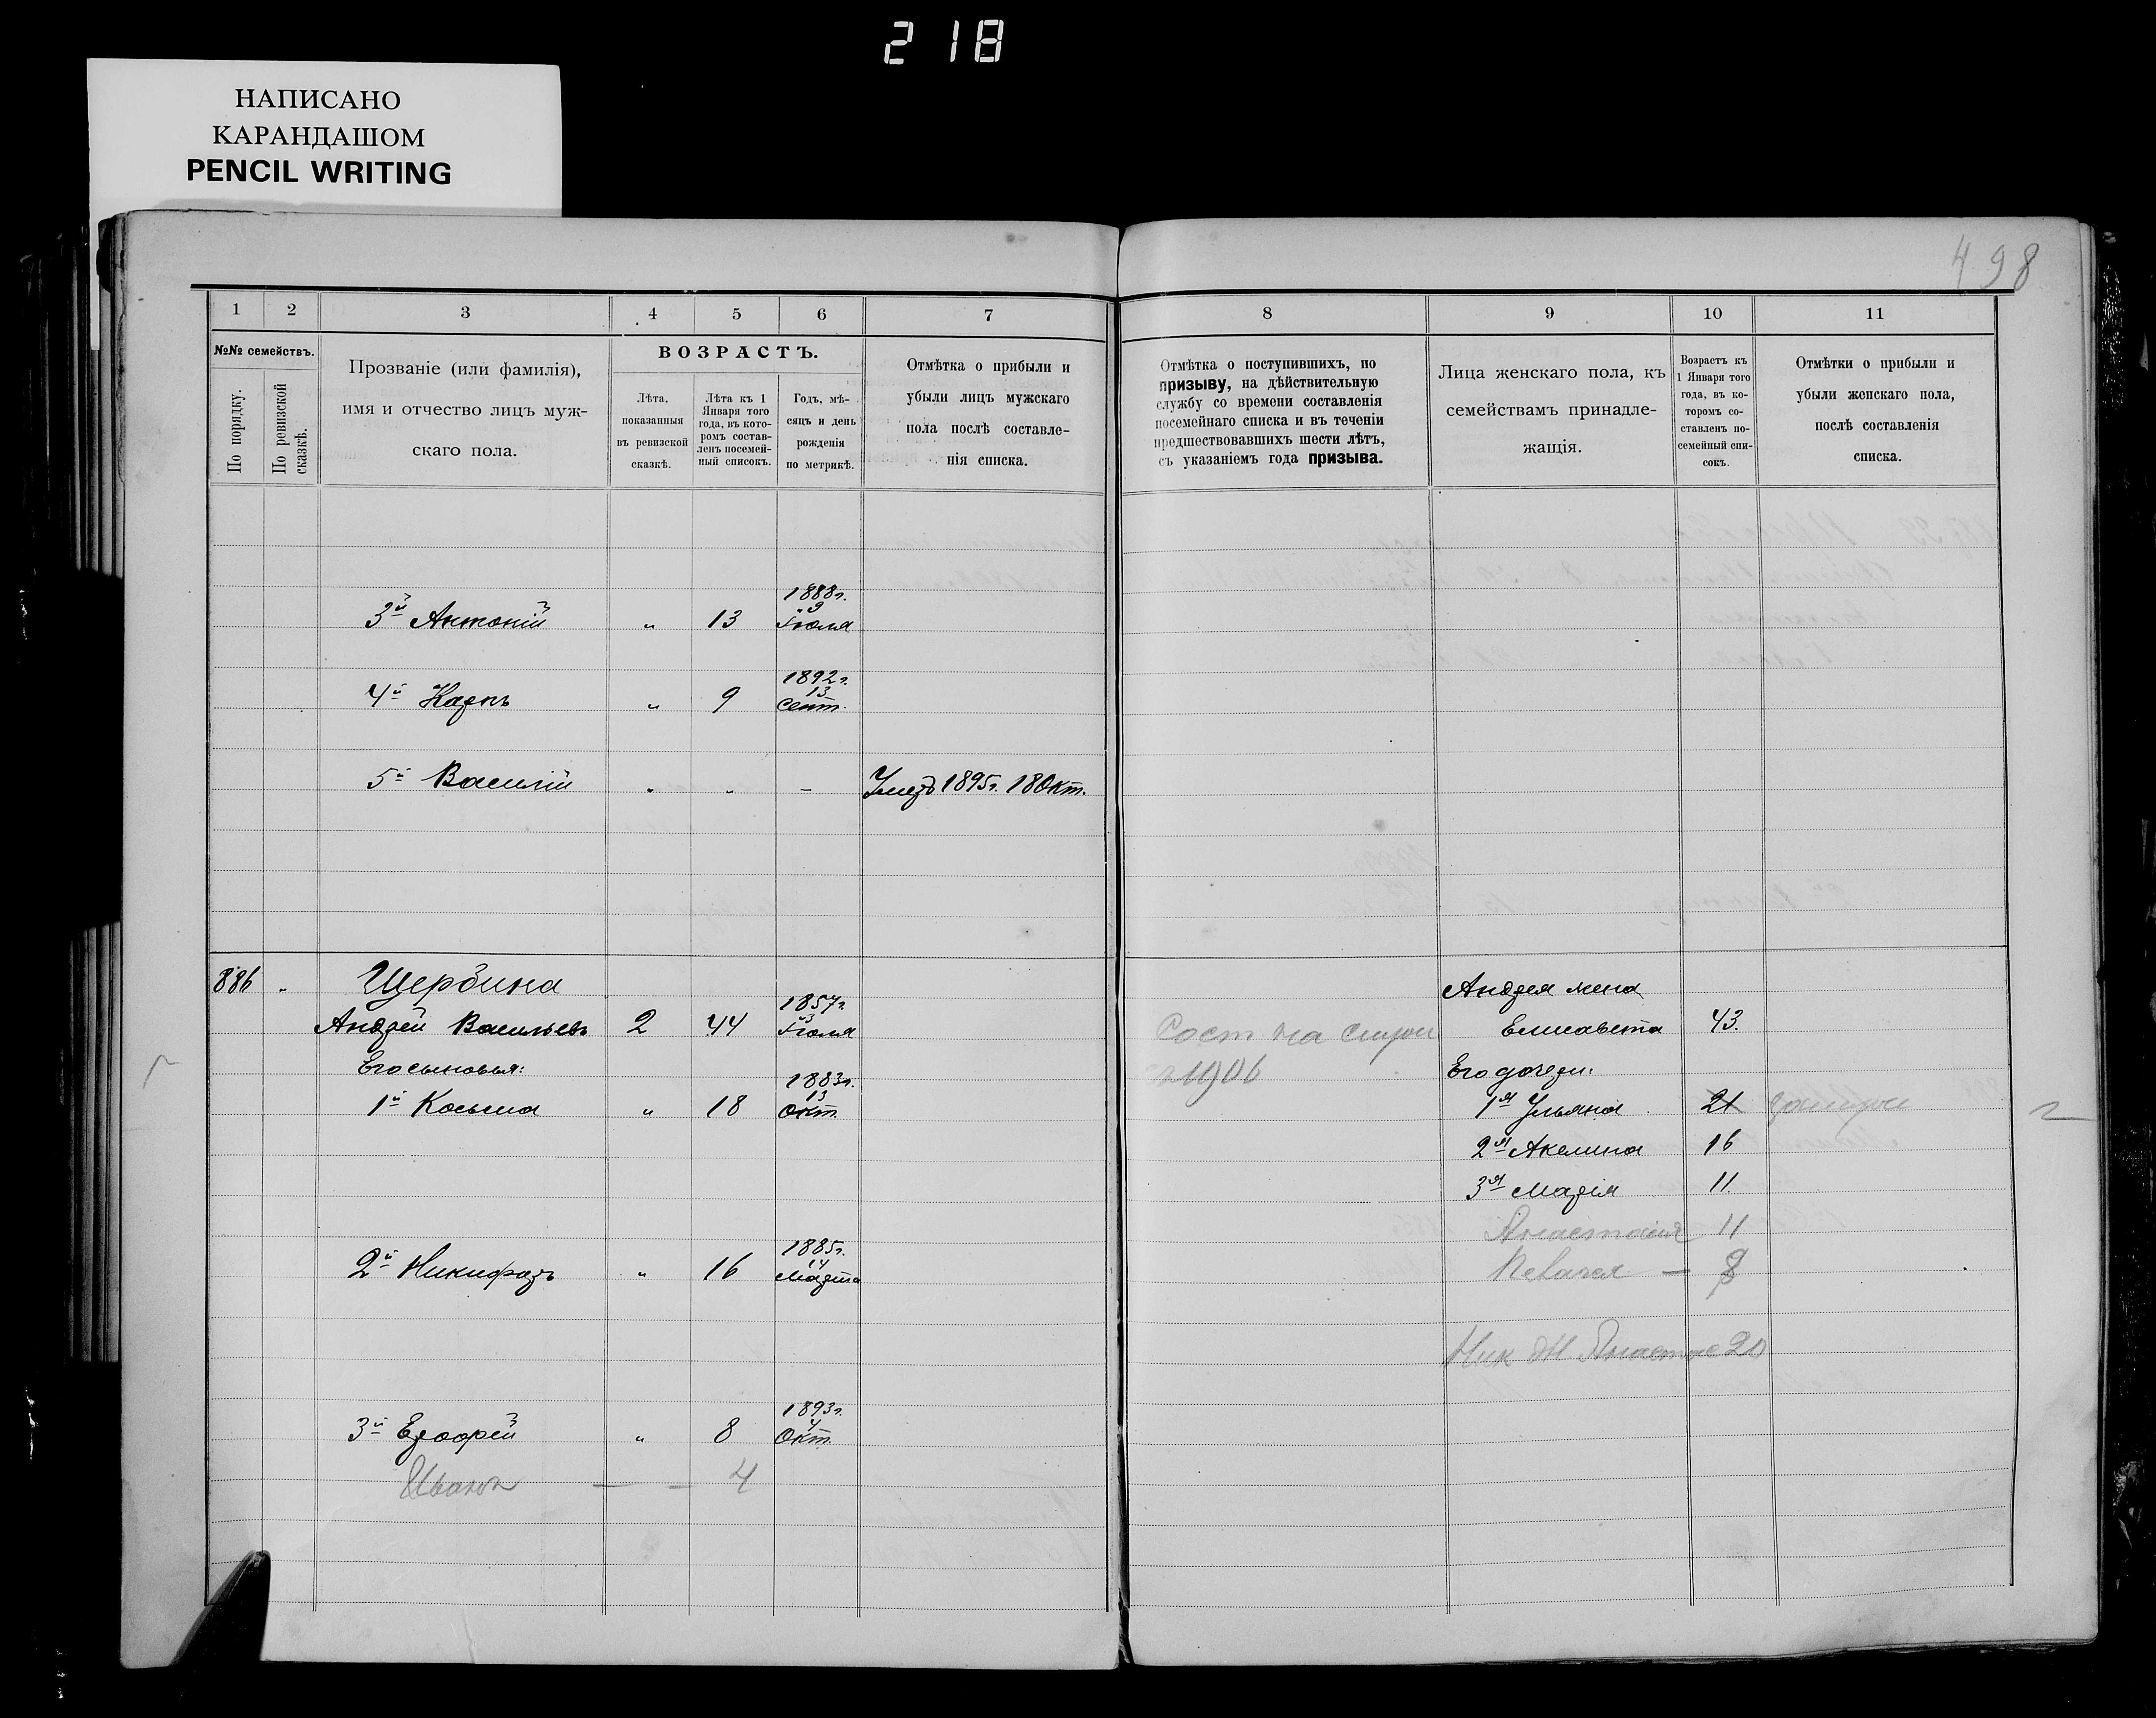 218
НАПИСАНО
КАРАНДАШОМ
PENCIL WRITING
498
1 2 3 4 5 6 7 8 9 10 11
№№ семействъ.
По порядку.
По ревизской сказкѣ.
Прозваніе (или фамилія),
имя и отчество лицъ муж-
скаго пола.
ВОЗРАСТЪ.
Лѣта,
показанныя
въ ревизской
сказкѣ.
Лѣта къ 1
Января того
года, въ кото-
ромъ состав-
ленъ посемей-
ный списокъ.
Годъ, мѣ-
сяцъ и день
рожденія
по метрикѣ.
Отмѣтка о прибыли и
убыли лицъ мужскаго
пола послѣ составле-
нія списка.
Отмѣтка о поступившихъ, по
призыву, на дѣйствительную
службу со времени составленія
посемейнаго списка и въ теченіи
предшествовавшихъ шести лѣтъ,
съ указаніемъ года призыва.
Лица женскаго пола, къ
семействамъ принадле-
жащія.
Возрастъ къ
1 Января того
года, въ ко-
торомъ со-
ставленъ по-
семейный спи-
сокъ.
Отмѣтки о прибыли и
убыли женскаго пола,
послѣ составленія
списка.
1888 г.
9
3й Антоній " 13 Іюля
1892 г.
13
4й Карпъ " 9 Сент.
5й Василій " " – Умеръ 1895 г. 18 Окт.
886 " Щербина
Андрея жена
1857 г.
3
Андрей Васильевъ 2 44 Іюля
Елисавета 43.
Его сыновья:
Его дочери:
1883 г.
13
1й Косьма " 18 Окт.
1906
1я Ульяна 21
2я Акелина 16
3я Марія 11.
Анастасия 11
1885 г.
14
2й Никифоръ " 16 Марта
Пелагея — 8
Ник Ж Анастас 20
1893 г.
4
3й Ерофей " 8 Окт.
Иванъ — — 4